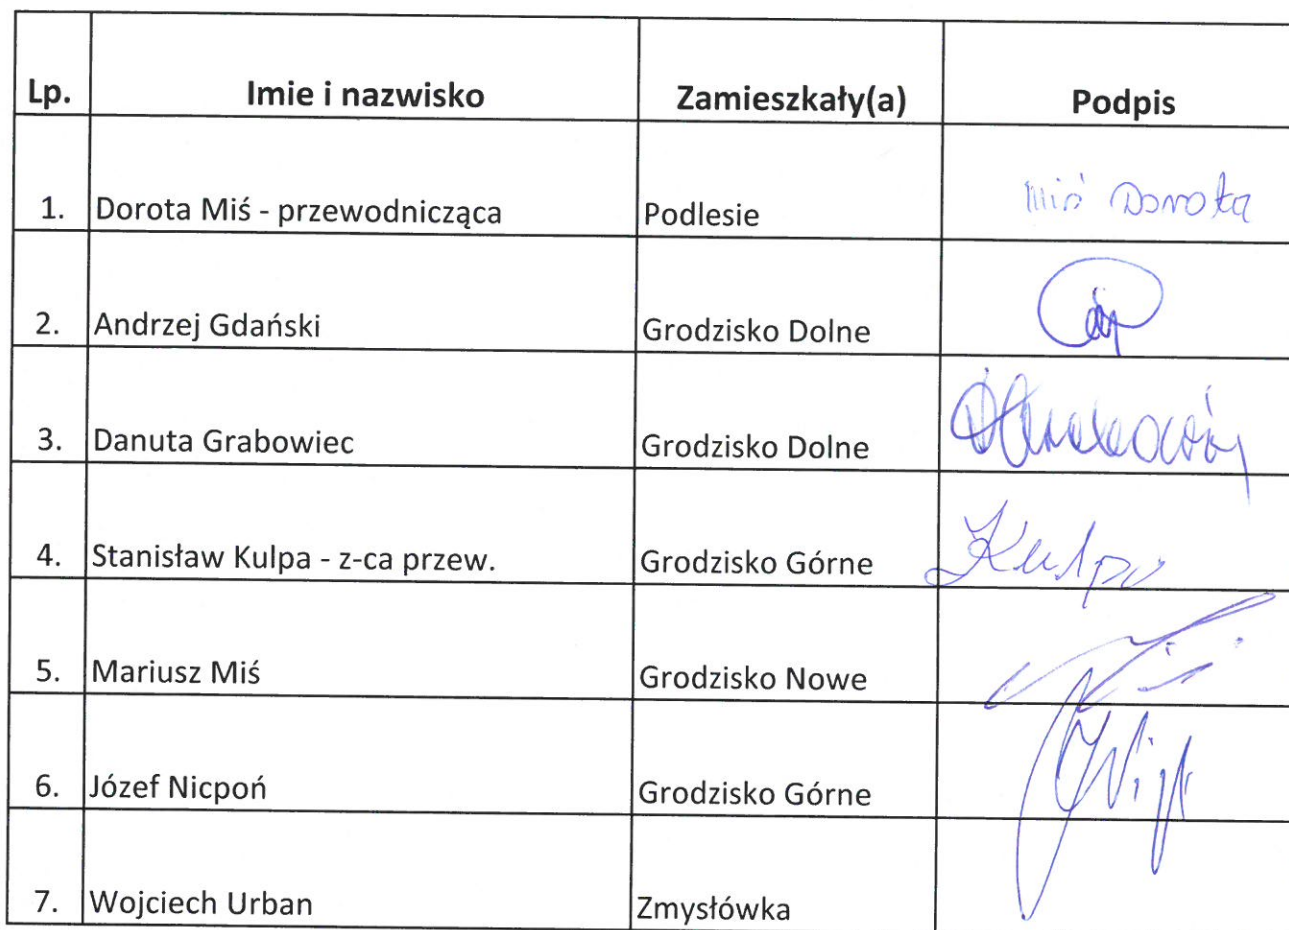 Lp. Imie i nazwisko Zamieszkały(a) Podpis
1. Dorota Miś - przewodnicząca Podlesie Miś Dorota
2. Andrzej Gdański Grodzisko Dolne
3. Danuta Grabowiec Grodzisko Dolne
4. Stanisław Kulpa - z-ca przew. Grodzisko Górne Kulpa
5. Mariusz Miś Grodzisko Nowe
6. Józef Nicpoń Grodzisko Górne
7. Wojciech Urban Zmysłówka